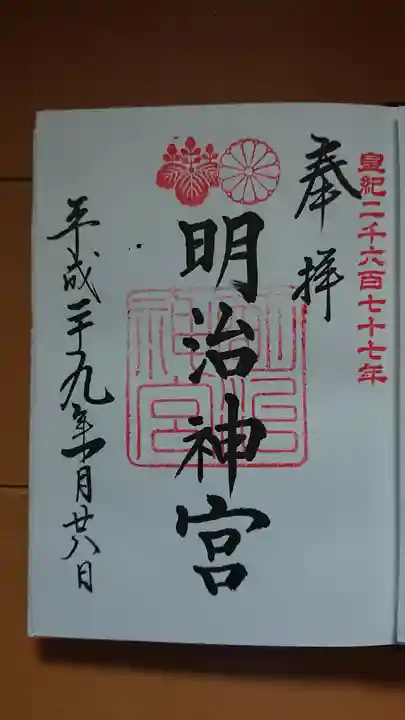 皇紀二千六百七十七年
奉拝
明治神宮
明治神宮
平成二十九年一月廿八日